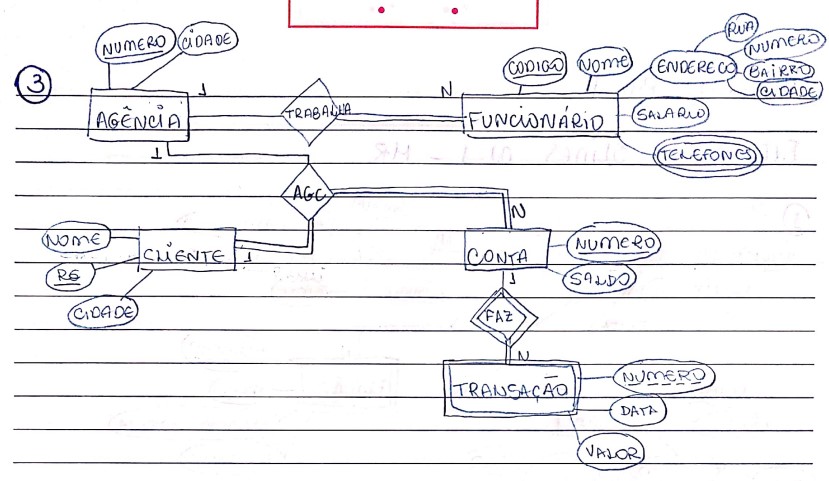 3
NUMERO
CIDADE
AGÊNCIA
1
TRABALHA
N
FUNCIONÁRIO
CODIGO
NOME
ENDERECO
RUA
NUMERO
BAIRRO
CIDADE
SALARIO
TELEFONES
1
AGC
N
NOME
RG
CIDADE
CLIENTE
1
CONTA
NUMERO
SALDO
1
FAZ
N
TRANSAÇÃO
NUMERO
DATA
VALOR